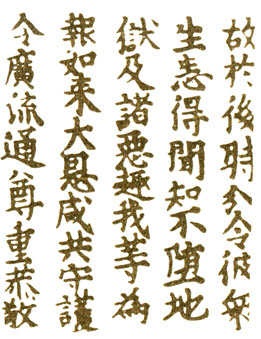 故於後時分令彼衆
生悉得聞知不墮地
獄及諸悪趣我等為
報如来大恩咸共守護
令廣流通尊重恭敬